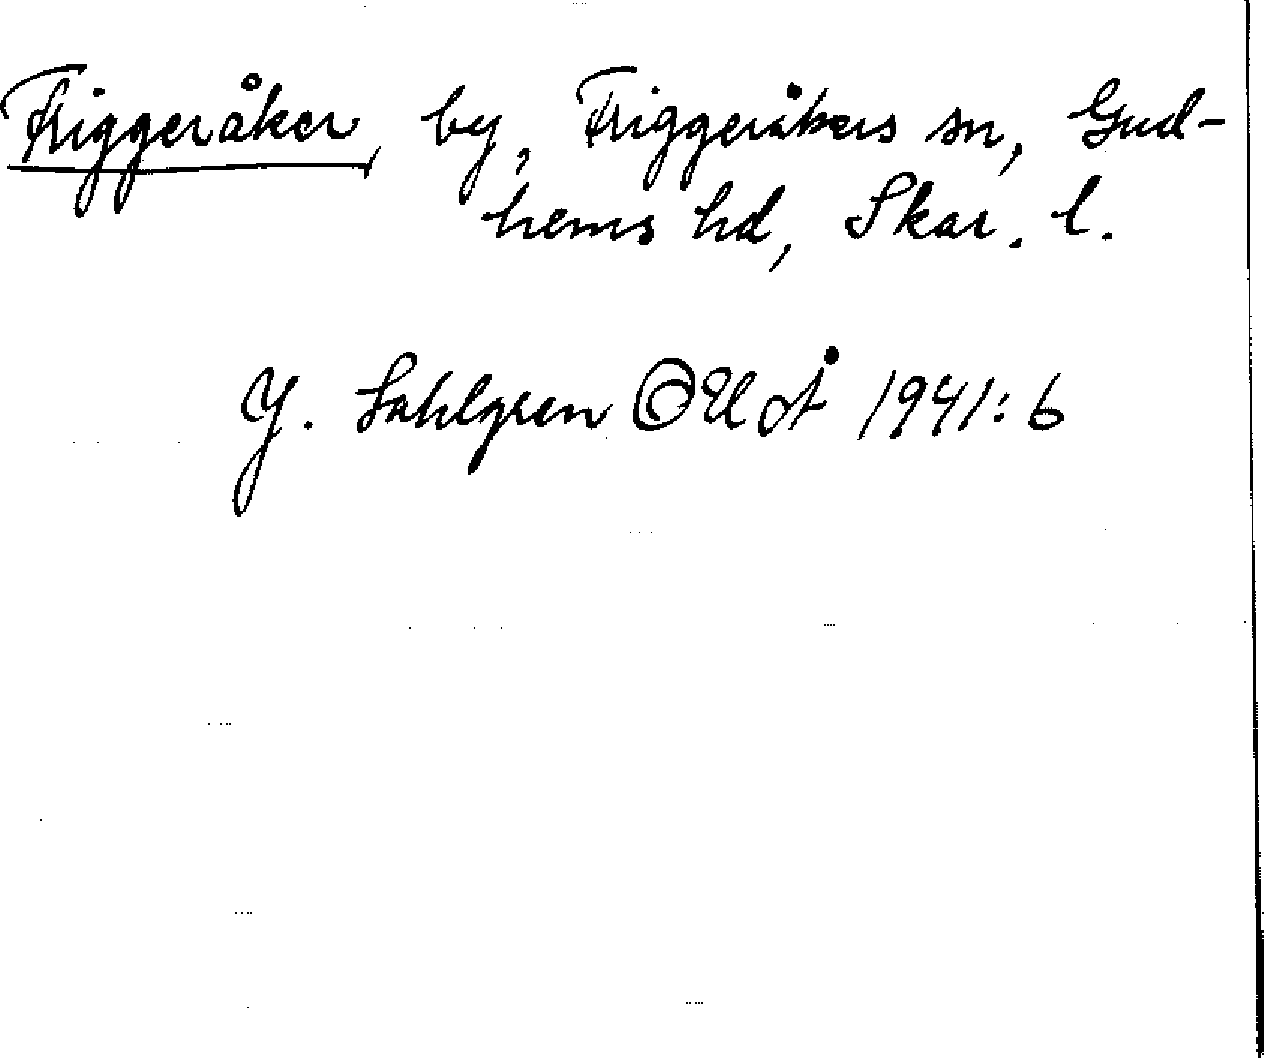 Friggeråker, by, Friggeråkers sn, Gud-
hems hd, Skar. l.
J. Sahlgren 1941:6